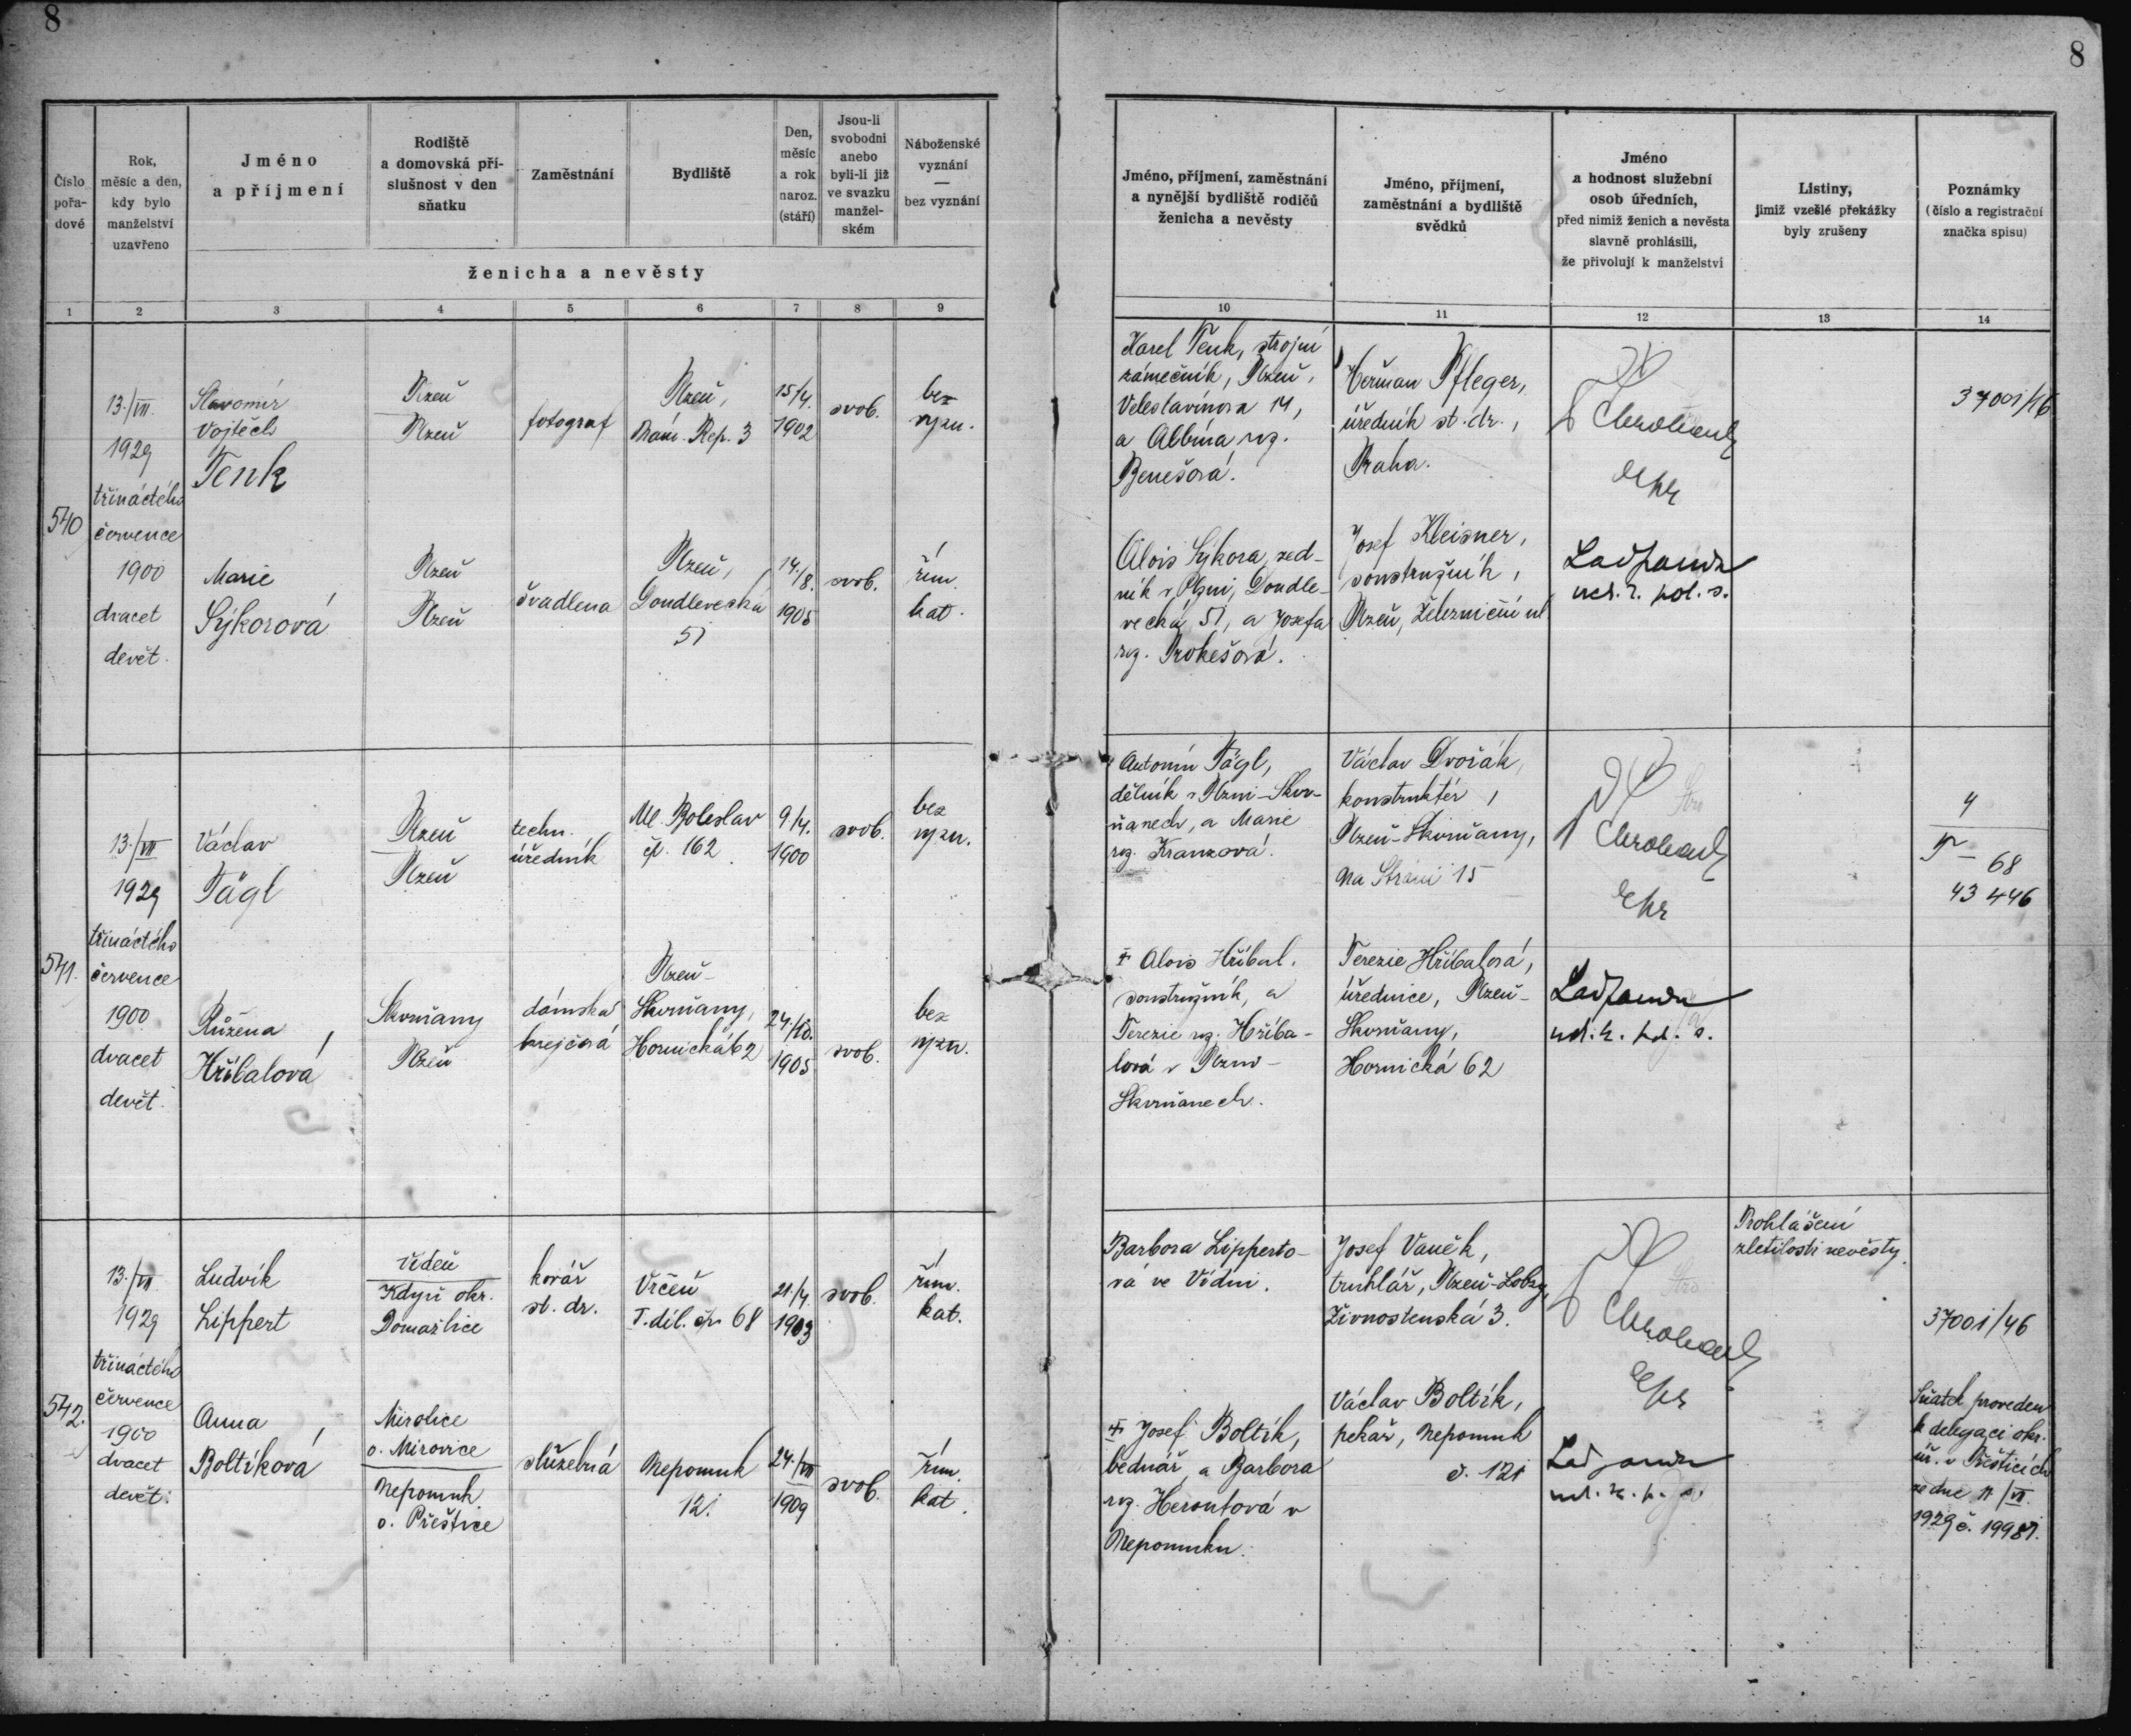 8
8
Číslo pořa-dové
Rok, měsíc a den, kdy bylo manželství uzavřeno
Jméno a příjmení
Rodiště a domovská pří-slušnost v den sňatku
Zaměstnání
Bydliště
Den, měsíc a rok naroz. (stáří)
Jsou-li svobodni anebo byli-li již ve svazku manžel-ském
Náboženské vyznání — bez vyznání
ženicha a nevěsty
1 2 3 4 5 6 7 8 9
Jméno, příjmení, zaměstnání a nynější bydliště rodičů ženicha a nevěsty
Jméno, příjmení, zaměstnání a bydliště svědků
Jméno a hodnost služební osob úředních, před nimiž ženich a nevěsta slavně prohlásili, že přivolují k manželství
Listiny, jimiž vzešlé překážky byly zrušeny
Poznámky (číslo a registrační značka spisu)
10 11 12 13 14
540
13./VII.
1929
třináctého
července
1900
dvacet
devět.
Slavomír
Vojtěch
Tenk
Plzeň
Plzeň
fotograf
Plzeň,
Nám. Rep. 3
15/4.
1902
svob.
bez
vyzn.
Marie
Sýkorová
Plzeň
Plzeň
švadlena
Plzeň,
Doudlevecká
51
14./8.
1905
svob.
řím.
kat.
Karel Tenk, strojní
zámečník, Plzeň,
Veleslavínova 14,
a Albína roz.
Benešová.
Heřman Pfleger,
úředník st. dr.,
Praha.
37001/46
Alois Sýkora, zed-
ník v Plzni, Doudle-
vecká 51, a Josefa
roz. Prokešová.
Josef Kleisner,
soustružník,
Plzeň, Železniční ul.
541.
13./VII
1929
třináctého
července
1900
dvacet
devět.
Václav
Tägl
Plzeň
Plzeň
techn.
úředník
Ml. Boleslav
čp. 162.
9/4.
1900
svob.
bez
vyzn.
Růžena
Hříbalová
Skvrňany
Plzeň
dámská
krejčová
Plzeň-
Skvrňany,
Hornická 62
24./10.
1905
svob.
bez
vyzn.
Antonín Tägl,
dělník v Plzni-Skvr-
ňanech, a Marie
roz. Kranzová.
Václav Dvořák,
konstruktér,
Plzeň-Skvrňany,
Na Stráni 15
4
T - 68
43446
‡ Alois Hříbal.
soustružník, a
Terezie roz. Hříba-
lová v Plzni-
Skvrňanech.
Terezie Hříbalová,
úřednice, Plzeň-
Skvrňany,
Hornická 62
542.
13./VII
1929
třináctého
července
1900
dvacet
devět.
Ludvík
Lippert
Vídeň
Kdyň okr.
Domažlice
kovář
st. dr.
Vrčeň
I. díl. čp. 68
21/4.
1903
svob.
řím.
kat.
Anna
Boltíková
Mirotice
o. Mirovice
Nepomuk
o. Přeštice
služebná
Nepomuk
121
24./VII
1909
svob.
řím.
kat.
Barbora Lipperto-
vá ve Vídni.
Josef Vaněk,
truhlář, Plzeň-Lobzy,
Živnostenská 3.
Prohlášení
zletilosti nevěsty.
37001/46
‡ Josef Boltík,
bednář, a Barbora
roz. Heroutová v
Nepomuku.
Václav Boltík,
pekař, Nepomuk
č. 121
Sňatek proveden
k delegaci okr.
úř. v Přešticích
ze dne 11/VI.
1929 č. 19987.